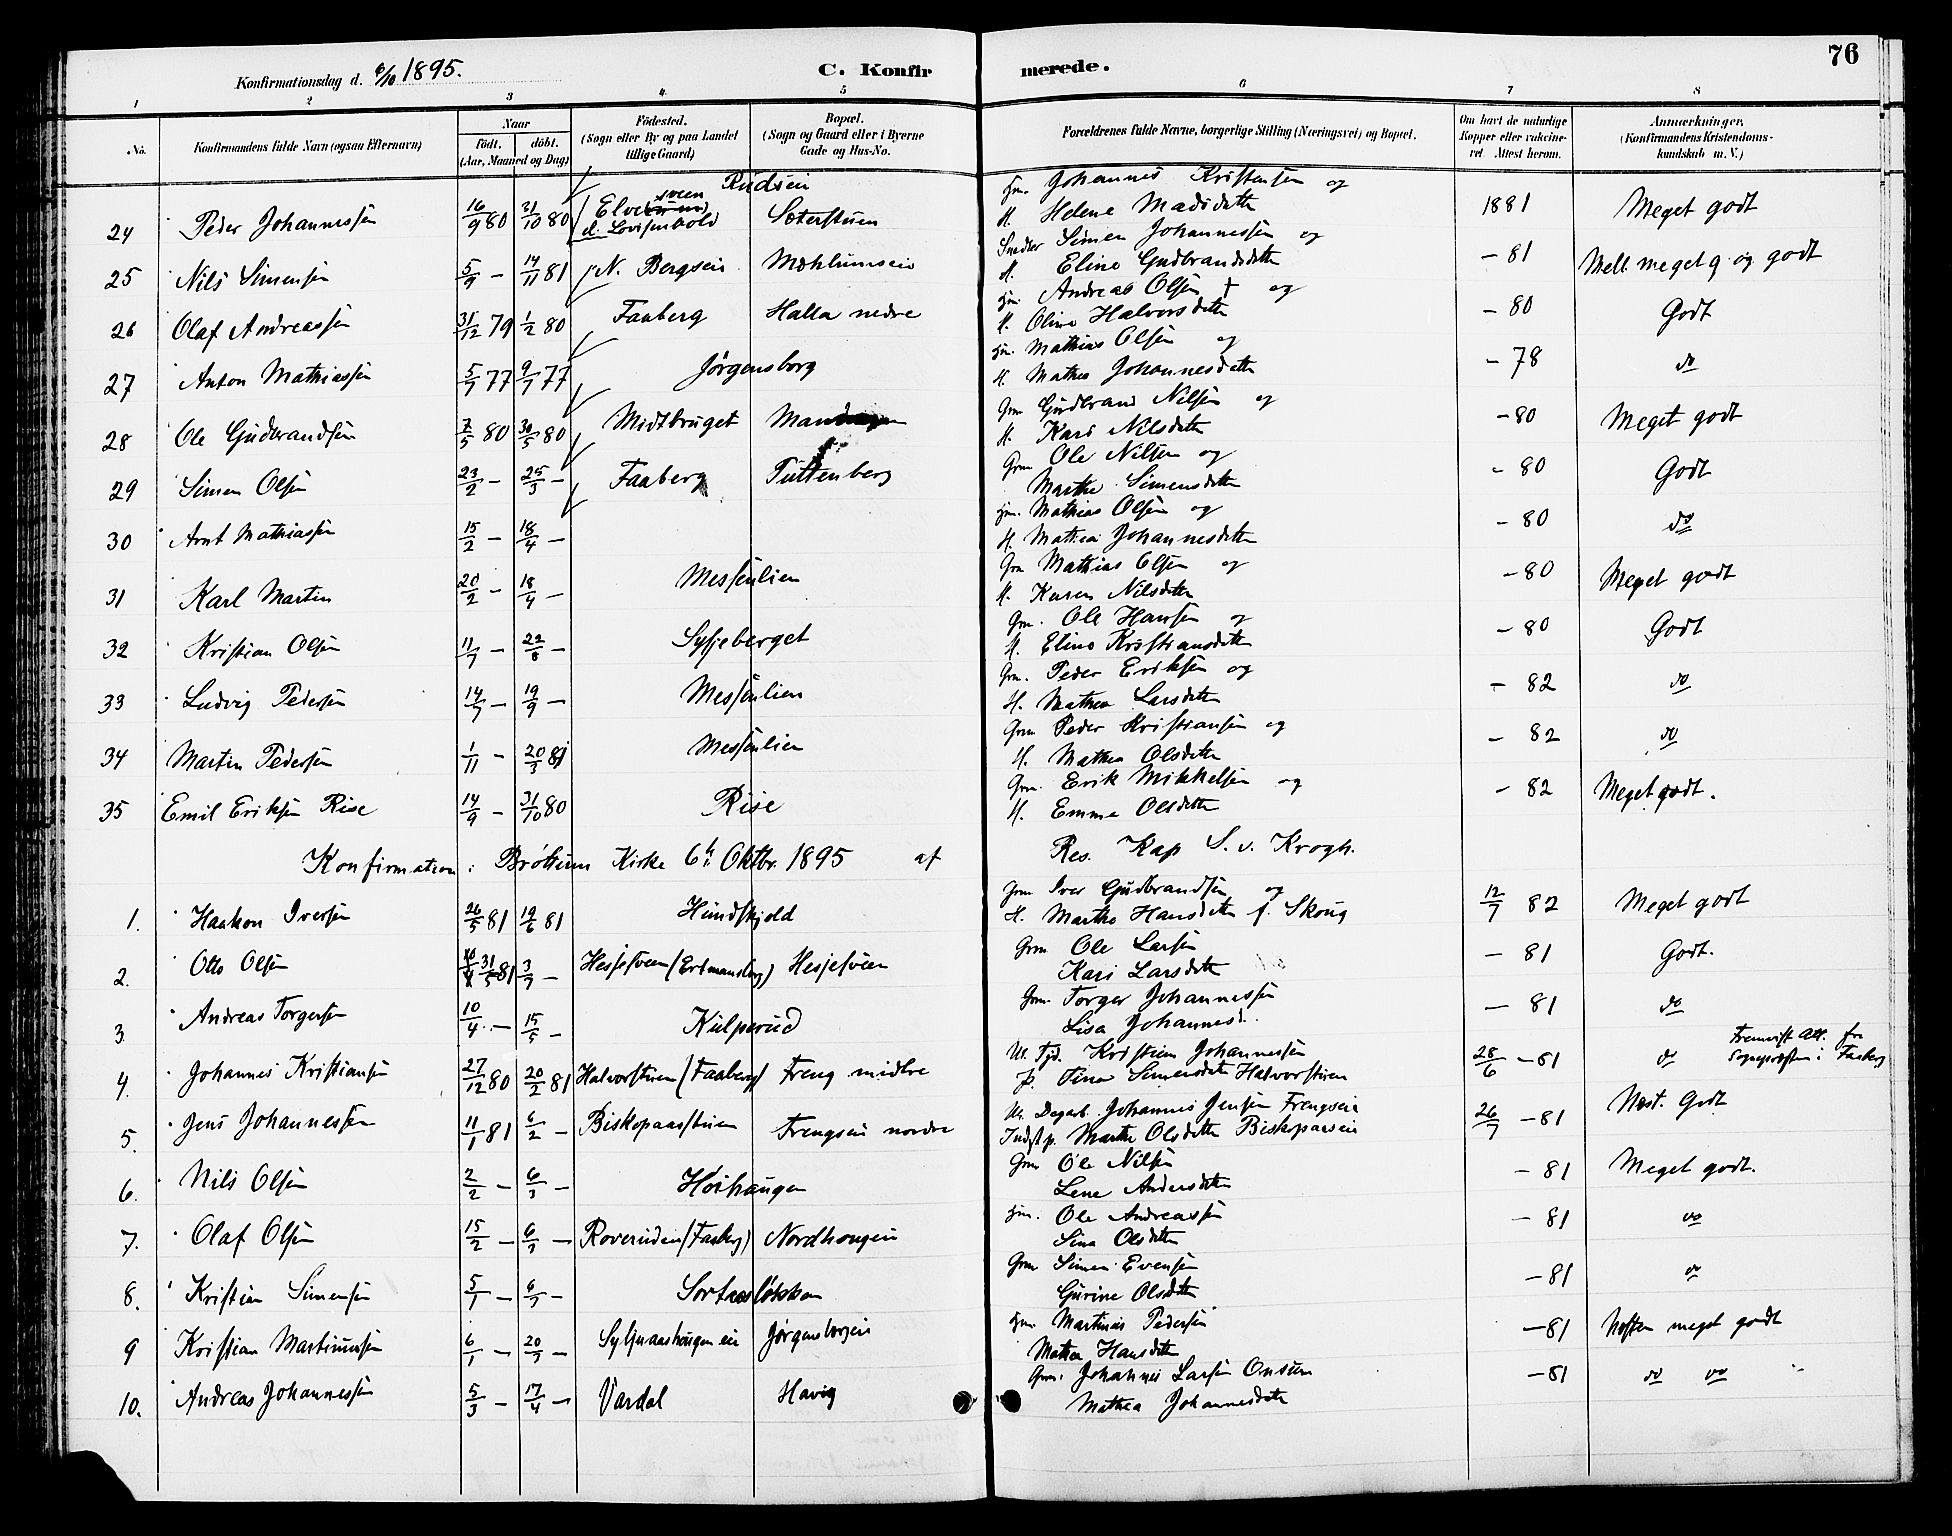 76
Konfirmationsdag d. 6/10 1895.
C. Konfirmerede.
1 2 3 4 5 6 7 8
No. Konfirmandens fulde Navn (ogsaa Efternavn) Naar født. døbt. (Aar, Maaned og Dag) Fødested. (Sogn eller By og paa Landet tillige Gaard) Bopæl. (Sogn og Gaard eller i Byerne Gade og Hus-No. Forældrenes fulde Navne, borgerlige Stilling (Næringsvei) og Bopæl. Om havt de naturlige Kopper eller vakcineret. Attest herom. Anmærkninger, (Konfirmandens Kristendomskundskab m. V.)
24 Peder Johannessen 16/9 80 31/10 80 Rudsein Sæterstuen Johannes Kristensen og H. Helene Madsdatter 1881 Meget godt
25 Nils Simensen 5/9 – 14/11 81 N. Bergsein Mæhlumseie Simen Johannessen og H. Eline Gudbrandsdatter – 81 Mell. meget g. og godt
26 Olaf Andreassen 31/12 79 1/2 80 Faaberg Halla nedre Hm. Andreas Olsen † og H. Oline Halvorsdatter – 80 Godt
27 Anton Mathiassen 5/7 77 9/7 77 Jørgensborg Hm. Mathias Olsen og H. Mathea Johannesdatter – 78 do
28 Ole Gudbrandsen 7/5 80 30/5 80 Midtbruget Gm Gudbrand Nilsen og H. Kari Nilsdatter – 80 Meget godt
29 Simen Olsen 23/2 – 25/3 – Faaberg Tuttenberg Gm Ole Nilsen og Marthe Simensdatter – 80 Godt
30 Arnt Mathiassen 15/2 – 18/4 – Hm. Mathias Olsen og H. Mathea Johannesdatter – 80 do
31 Karl Martin 20/2 – 18/4 – Messenlien Gm Mathias Olsen og H. Karen Nilsdatter – 80 Meget godt
32 Kristian Olsen 11/7 – 22/8 – Sysjeberget Gm. Ole Hansen og H. Eline Kristiansdatter – 80 Godt
33 Ludvig Pedersen 14/7 – 19/9 – Messenlien Gm. Peder Eriksen og H. Mathea Larsdatter – 82 do
34 Martin Pedersen 1/11 – 20/3 81 Messenlien Gm Peder Kristiansen og H. Mathea Olsdatter – 82 do
35 Emil Eriksen Rise 14/9 – 31/10 80 Rise Gm. Erik Mikkelsen og H. Emma Olsdatter – 82 Meget godt.
Konfirmation i Brøttum Kirke 6te Oktbr. 1895 af Res. Kap S. v. Krogh.
1. Haakon Iversen 26/5 81 19/6 81 Hundskjold Gm Iver Gudbrandsen og H. Marthe Hansdatter f. Skoug 12/7 82 Meget godt
2. Otto Olsen 31/5 81 3/7 – Hesjesveen (Ertmansberg) Hesjesveen Gm Ole Larsen Kari Larsdatter – 81 Godt.
3. Andreas Torgersen 10/4 – 15/5 – Kulperud Gm. Torger Johannessen Lisa Johannesd. – 81 do
4. Johannes Kristiansen 27/12 80 20/2 81 Halvorstuen (Faaberg) Freng midtre U. Tjd. Kristian Johannessen P. Tina Simensdatter Halvorstuen 28/6 – 81 do Fremvist Att. fra Sognepræsten i Faaberg
5. Jens Johannessen 11/1 81 6/2 – Biskopaasstuen Frengseie nordre U. Dagarb. Johannes Jensen Frengseie Indst.p. Marthe Olsdatter Biskopaaseie 26/7 – 81 Næst. Godt
6. Nils Olsen 2/2 – 6/3 – Høihaugen Gm Ole Nilsen Lene Andersdatter – 81 Meget godt.
7. Olaf Olsen 15/2 – 6/3 – Roveruden (Faaberg) Nordhougen Hm. Ole Andreassen Sina Olsdatter – 81 do
8. Kristian Simensen 5/1 – 6/3 – Sortaasløkken Gm Simen Evensen Gurine Olsdatter – 81 do
9 Kristian Martinussen 6/1 – 20/3 – Syljuaashougen eie Jørgensborgeie Hm. Martinus Pedersen Mathea Hansdatter – 81 Næsten meget godt
10. Andreas Johannessen 5/3 – 17/4 – Vardal Havig Gm. Johannes Larsen Onsum Mathea Johannesdatter – 81 do do